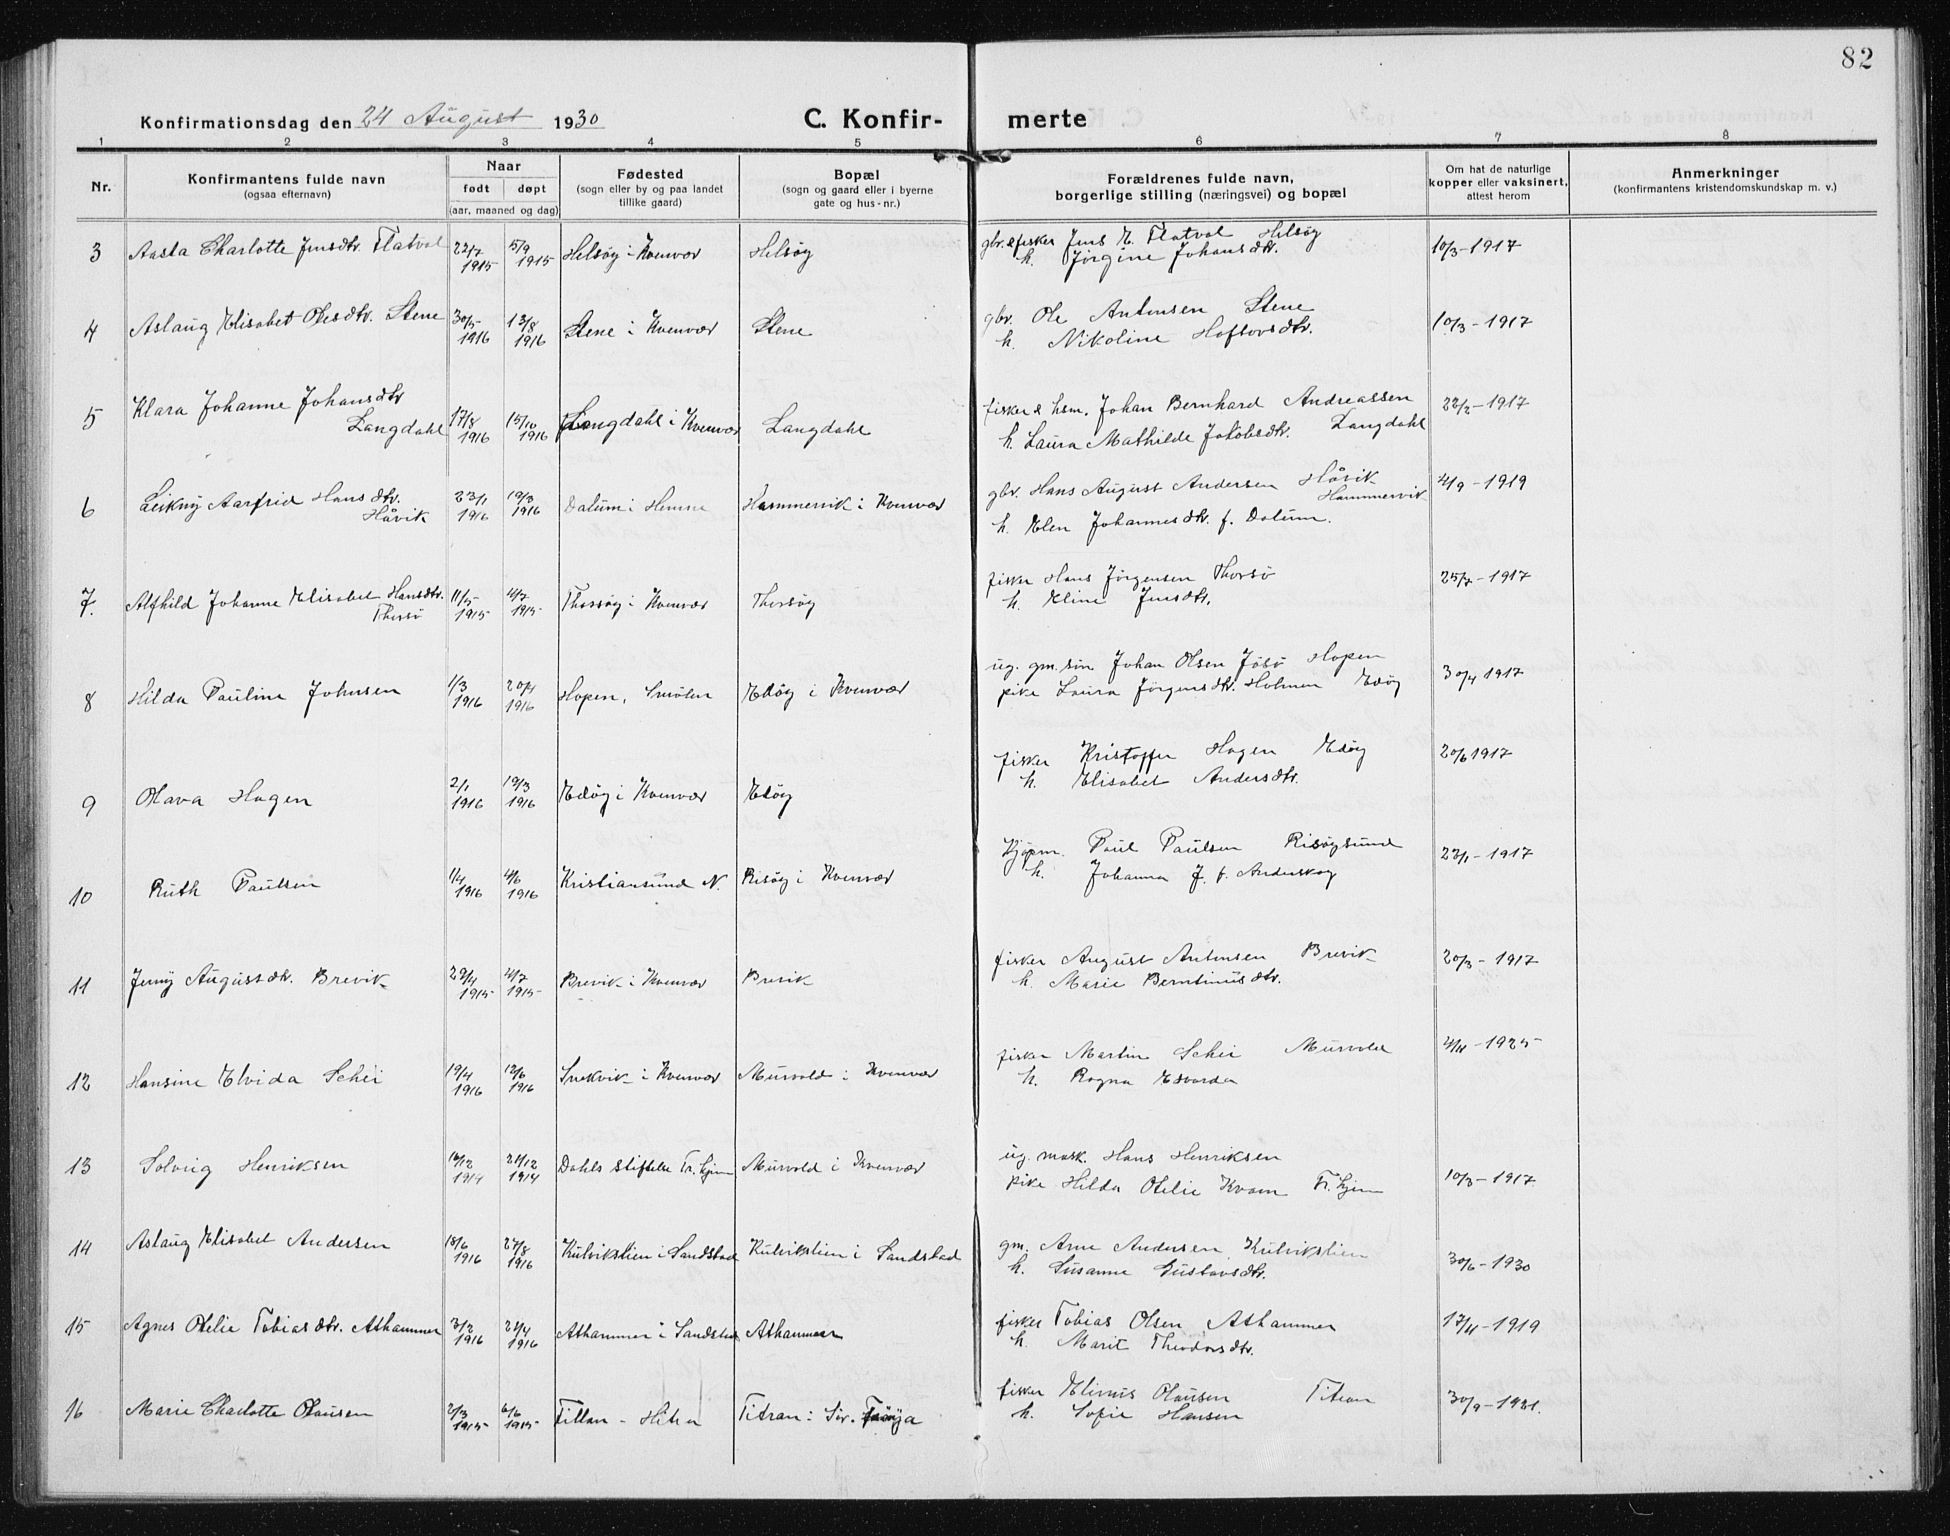 82
Konfirmationsdag den 24 August 1930 C. Konfir- merte
1 2 3 4 5 6 7 8
Nr. Konfirmantens fulde navn (ogsaa efternavn) Naar født døpt (aar, maaned og dag) Fødested (sogn eller by og paa landet tillike gaard) Bopæl (sogn og gaard eller i byerne gate og hus-nr.) Forældrenes fulde navn, borgerlige stilling (næringsvei) og bopæl Om hat de naturlige kopper eller vaksinert, attest herom Anmerkninger (konfirmantens kristendomskundskap m. v.)
3 Aasta Charlotte Jensdtr. Flatval 22/7 1915 5/9 1915 Helsøy i Kvenvær Helsøy gbr. & fisker Jens E. Flatval Helsøy 10/3-1917
h. Jørgine Johansdtr.
4 Aslaug Elisabet Olesdtr. Stene 30/5 1916 13/8 1916 Stene i Kvenvær Stene gbr. Ole Antonsen Stene 10/3-1917
h. Nikoline Hoftovsdtr.
5 Klara Johanne Johansdtr 17/8 1916 15/10 1916 Langdahl i Kvenvær Langdahl fisker & hsm. Johan Bernhard Andreassen 22/2-1917
Langdahl h. Laura Mathilde Jakobsdtr. Langdahl
6 Leikny Aarfrid Hansdtr. 23/1 1916 19/3 1916 Dalum i Hemne Hammervik i Kvenvær gbr. Hans August Andersen Håvik 4/9-1919
Håvik Hammervik
h. Elen Johannesdtr. f. Dalum.
7. Alfhild Johanne Elisabet Hansdtr. 11/5 1915 4/7 1915 Thorsøy i Kvenvær Thorsøy fisker Hans Jørgensen Thorsø 25/7-1917
Thorsø h. Eline Jensdtr.
8 Hilda Pauline Johnsen 1/3 1916 20/4 1916 Hopen, Smølen Edøy i Kvenvær ug. gm. søn Johan Olsen Jøsø Hopen 30/4 1917
pike Laura Jørgensdtr. Holmen Edøy
9 Olava Hagen 2/1 1916 19/3 1916 Edøy i Kvenvær Edøy fisker Kristoffer Hagen Edøy 20/6 1917
h. Elisabet Andersdtr.
10 Ruth Paulsen 1/4 1916 4/6 1916 Kristiansund N. Risøy i Kvenvær Kjøpm. Paul Paulsen Risøysund 22/1-1917
h. Johanna J. f. Anderskog
11 Jenny Augustdtr. Brevik 29/4 1915 4/7 1915 Brevik i Kvenvær Brevik fisker August Antonsen Brevik 20/3-1917
h. Marie Berntinusdtr.
12 Hansine Elvida Schei 19/4 1916 12/6 1916 Snekvik i Kvenvær Murvold i Kvenvær fisker Martin Schei Murvold 4/11-1925
h. Ragna Edvarda
13 Solveig Henriksen 16/12 1914 21/12 1914 Dahls stiftelse Tr.hjem Murvold i Kvenvær ug. mask. Hans Henriksen
pike Hilda Otelie Kvam Tr.hjem 10/3-1917
14 Aslaug Elisabet Andersen 18/6 1916 27/8 1916 Kulvikslien i Sandstad Kulvikslien i Sandstad gm. Arne Andersen Kulvikslien 30/6-1930
h. Susanne Gustavsdtr.
15 Agnes Otelie Tobiasdtr. Athammer 3/2 1916 24/4 1916 Athammer i Sandstad Athammer fisker Tobias Olsen Athammer 17/11-1919
h. Marit Theodorsdtr.
16 Marie Charlotte Olausen 2/3 1915 6/6 1915 Fillan - Hitra Titran i Sør. Frøya fisker Elinus Olausen Titran 30/9-1921.
h. Sofie Hansen